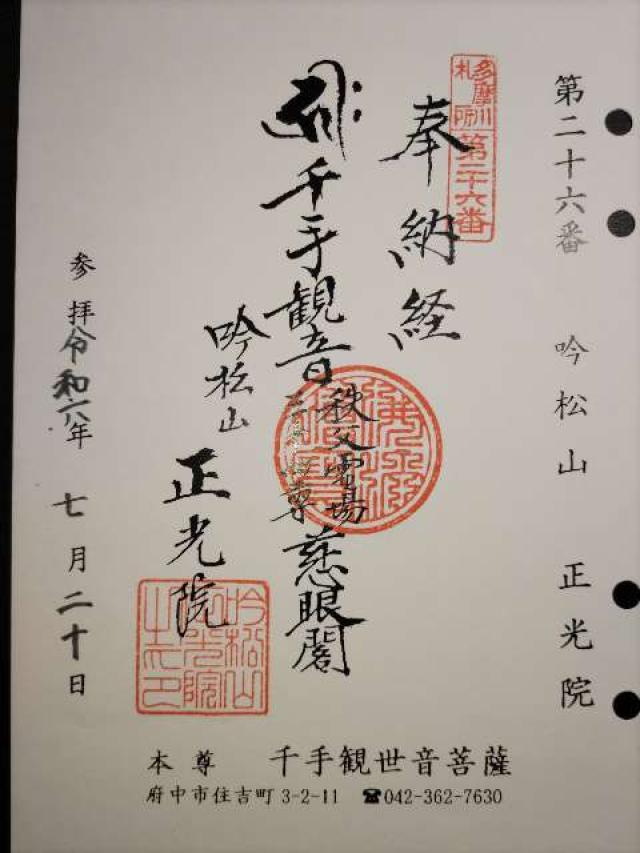 第二十六番 吟松山 正光院
多摩川
札所
第二十六番
奉納経
千手観音
秩父霊場
慈眼閣
吟松山
正光院
吟松山
正光院
之印
参拝令和六年七月二十日
本尊 千手観世音菩薩
府中市住吉町3-2-11 ☎042-362-7630